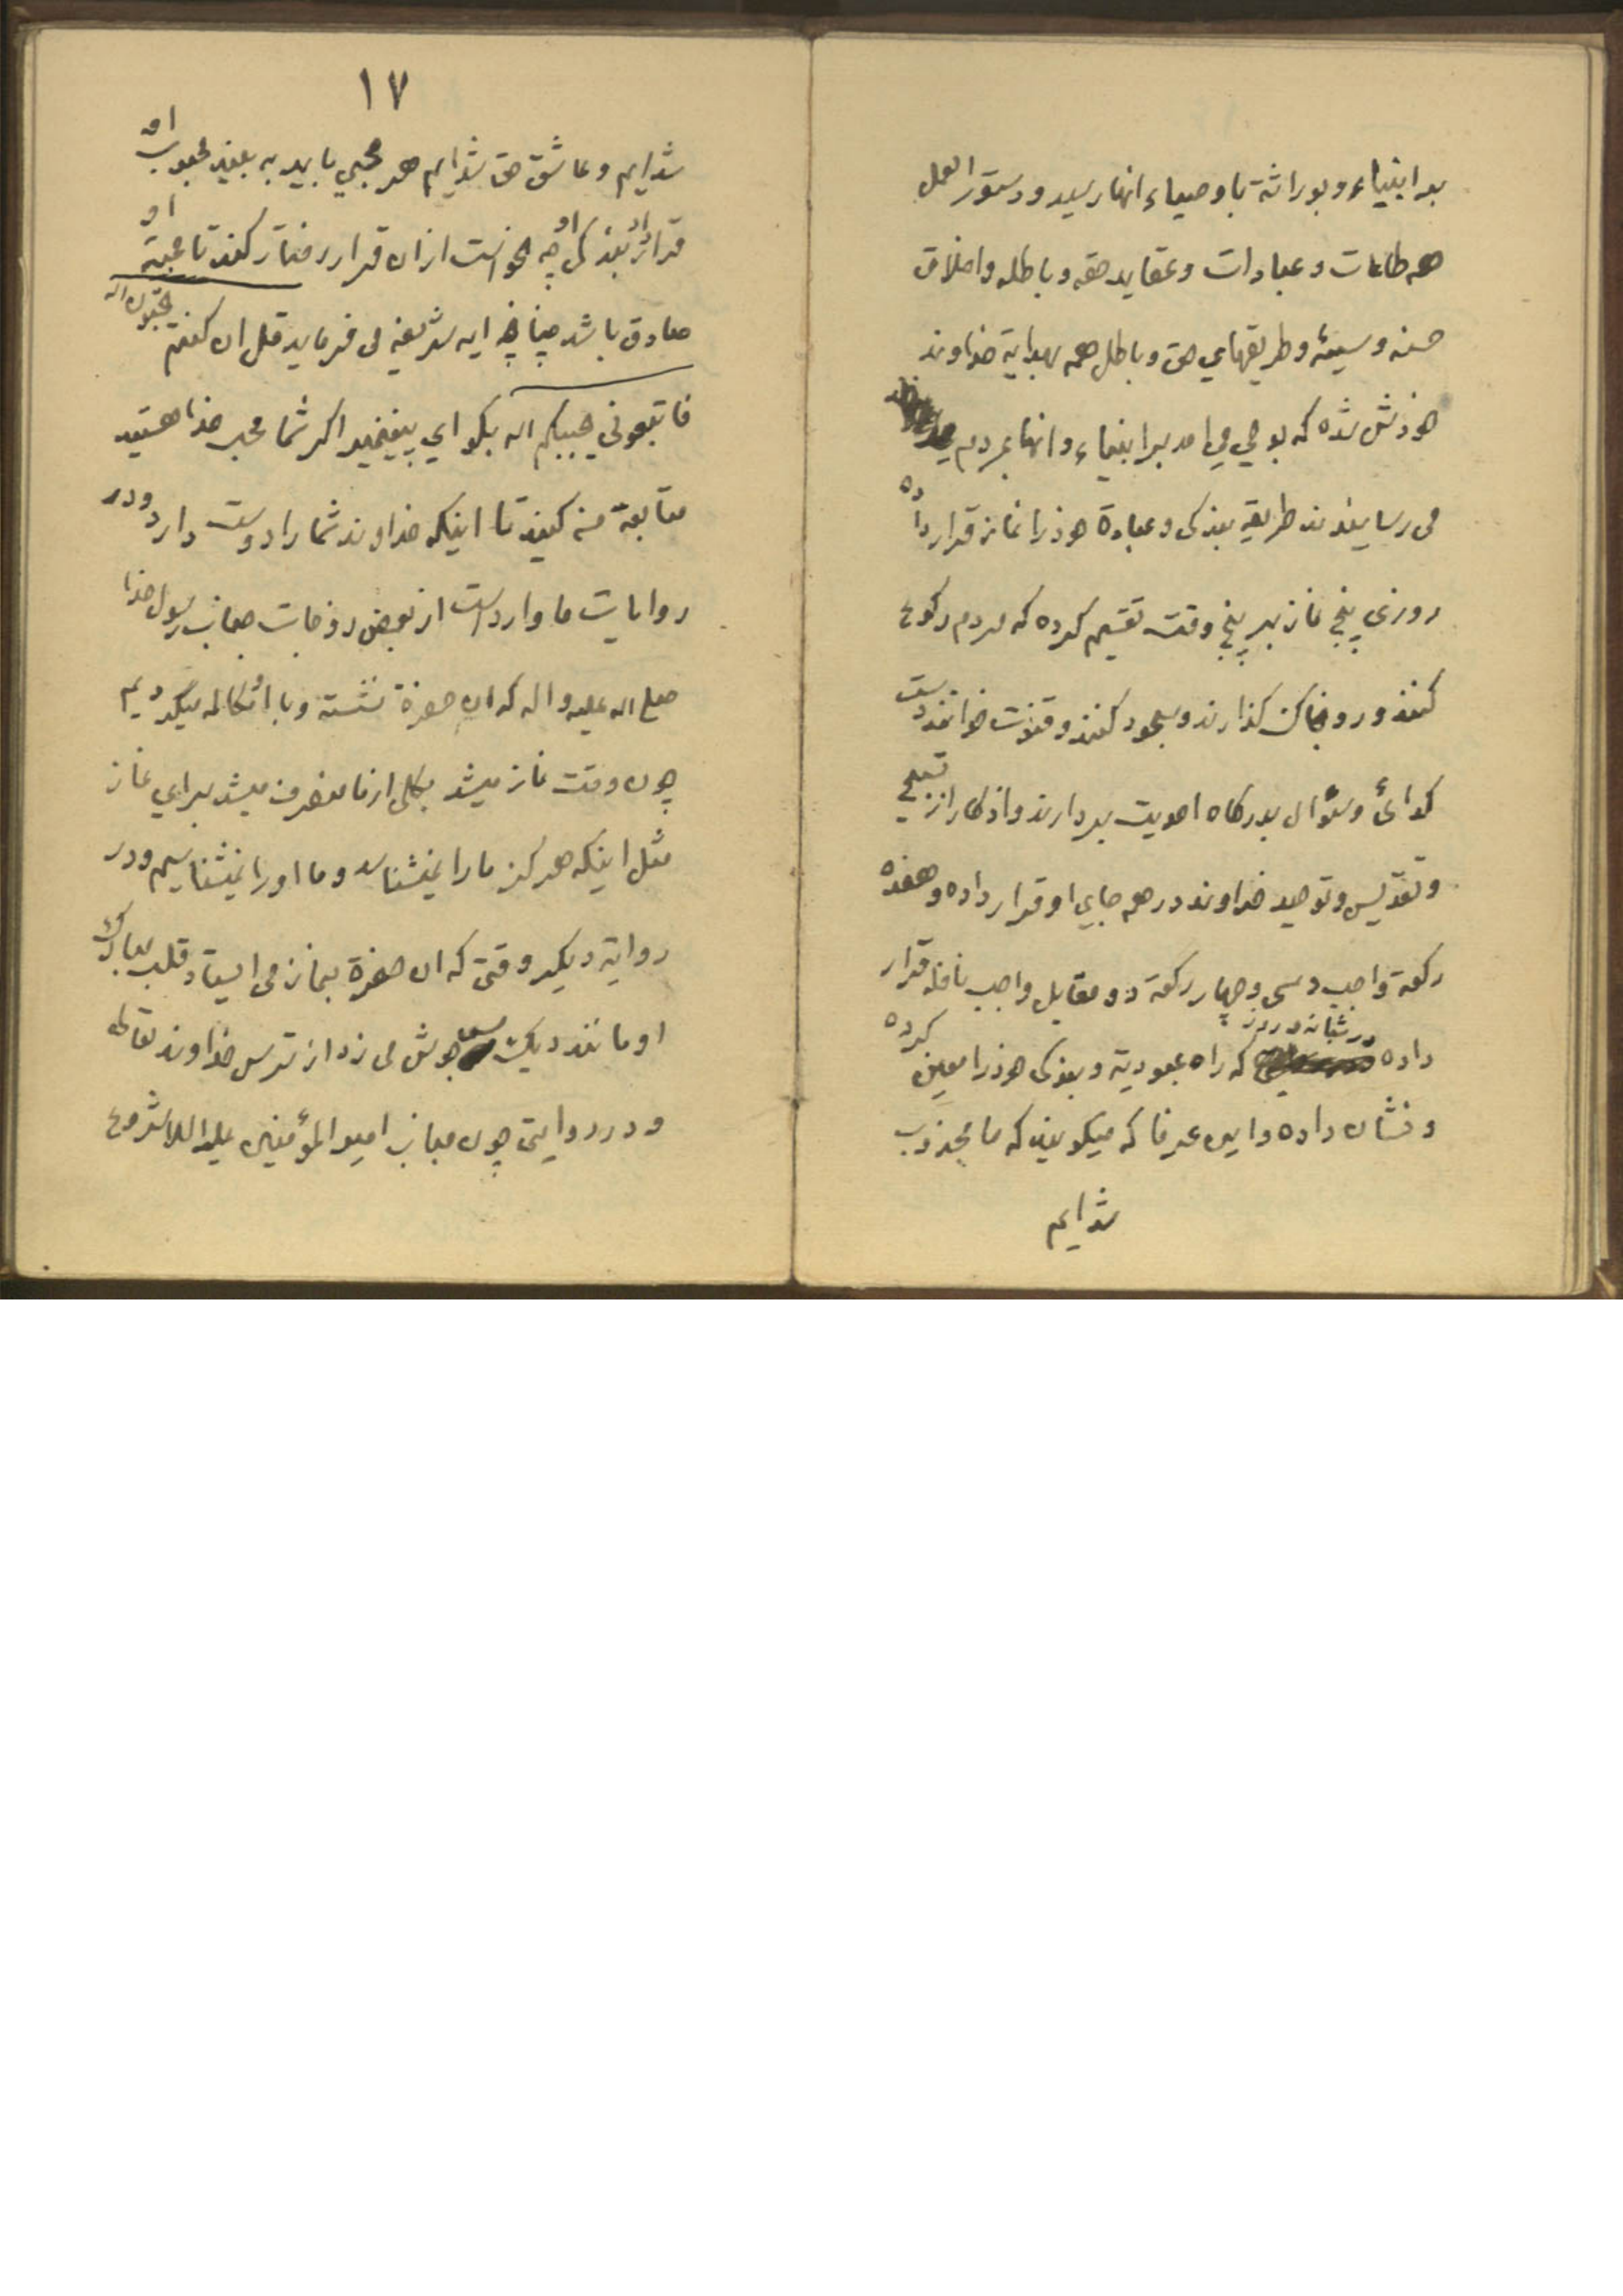 بر انبیاء و بوراثة باوصیاء انها رسید و دستور العمل
همه طاعات و عبادات و عقاید حقه و باطله و اخلاق
حسنه و سیئه و طریقهای حق و باطل همه بهدایة خداوند
خودش شده که بوحی می امد بر انبیاء و انها بمردم
می رسانیدند طریقه بندکی و عبادة خود را نماز قرار داده
روزی پنج نماز بر پنج وقت تقسیم کرده که مردم رکوع
کنند و رو بخاک کذارند و سجود کنند و قنوت خوانند دست
کدائی و سؤال بدرکاه احدیت بردارند و اذکار از تسبیح
و تقدیس و توحید خداوند در همه جای او قرار داده و هفده
رکعة واجب و سی و چهار رکعة دو مقابل واجب نافله قرار
داده در شبانه روز که راه عبودیة و بندکی خود را معین کرده
و نشان داده و این عرفا که میکویند که ما مجذوب
شده ایم
١٧
شده ایم و عاشق حق شده ایم هر محبی باید به بیند محبوب او
قرار بندکی او چه نحو است از ان قرار رفتار کند تا محبة او
صادق باشد چنانچه ایه شریفه می فرماید قل ان کنتم تحبون اله
فاتبعونی یحببکم اله بکو ای پیغمبر اکر شما محب خدا هستید
متابعة من کنید تا اینکه خداوند شما را دوست دارد و در
روایات ما وارد است از بعض زوجات جناب رسول خدا
صلی اله علیه و اله که ان حضرة نشسته و با او مکالمه میکردیم
چون وقت نماز میشد بکلی از ما منصرف میشد برای نماز
مثل اینکه هرکز ما را نمیشناسد و ما او را نمیشناسیم و در
روایة دیکر وقتی که ان حضرة بنماز می ایستاد قلب مبارک
او مانند دیک مس جوش می زد از ترس خداوند تعالی
و در روایتی چون جناب امیر المؤمنین علیه السلام شروع